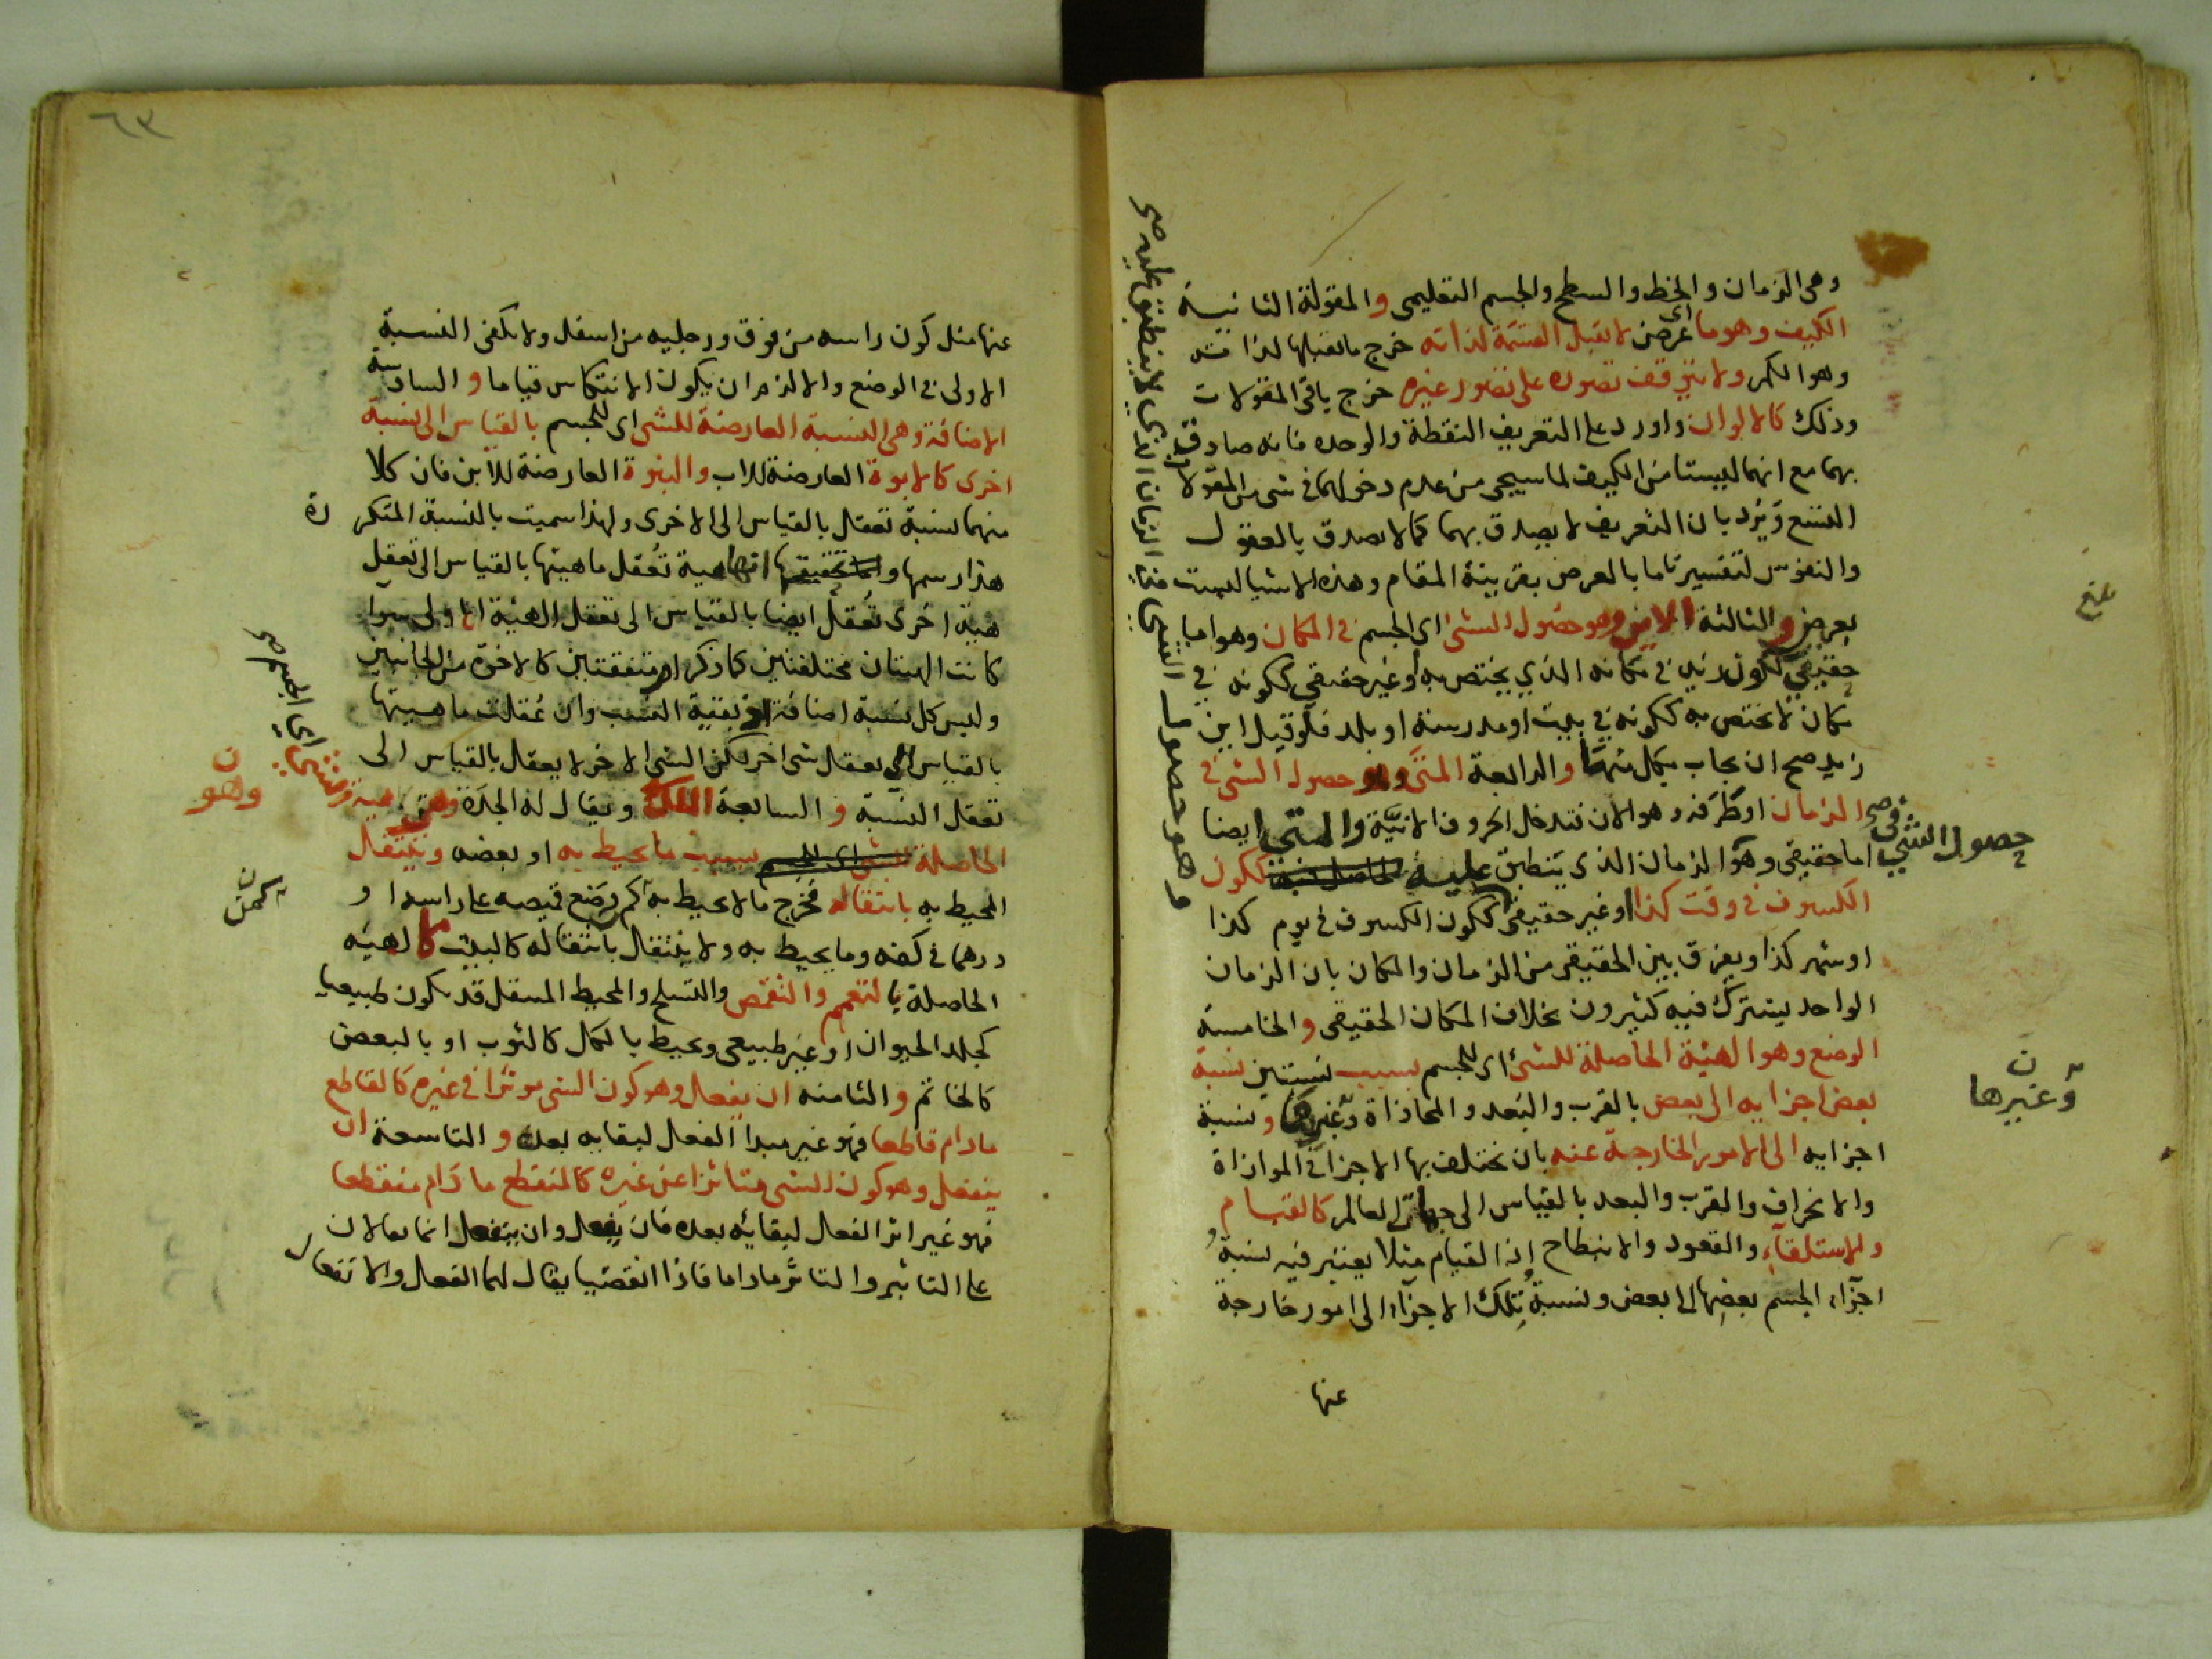 وهى الزمان والخط والسطح والجسم التعليمى والمقولة الثانية
الكيف وهو ما اى عرض لا تقبل القسمة لذاته خرج ما يقبلها لذاته
وهو الكم ولا يتوقف تصوره على تصور غيره خرج باقى المقولات
وذلك كالالوان واورد على التعريف النقطة والوحده فانه صادق
بهما مع انهما ليستا من الكيف لما سيجى من عدم دخولهما فى شى من المقولات
التسع ويرد بان التعريف لا يصدق بهما كما لا يصدق بالعقول
والنفوس لتفسير ما ما بالعرض بقرينة المقام وهذه الاشيا ليست
بعرض والثالثة الاين وهو حصول الشئ اى الجسم فى المكان وهو اما
حقيقى ككون زيد فى مكانه الذي يختص به أو غير حقيقي ككونه في
مكان لا يختص به ككونه في بيت او مدرسة او بلد فلو قيل اين
زيد صح ان يجاب بكل منهما والرابعة المتى وهو حصول الشى فى
الزمان او طرفه وهو الان فتدخل الحروف الانيّة والمتى ايضا
حصول الشي في صح
اما حقيقى وهو الزمان الذى ينطبق عليه ككون
الكسوف فى وقت كذا او غير حقيقى ككون الكسوف فى يوم كذا
او شهر كذا ويفرق بين الحقيقى من الزمان والمكان بان الزمان
الواحد يشترك فيه كثيرون بخلاف المكان الحقيقى والخامسة
الوضع وهو الهيئة الحاصلة للشئ اى للجسم بسبب نسبتين نسبة
بعض اجزايه الى بعض بالقرب والبعد والمحاذاة وغيرها ونسبة
وغيرها ن
اجزايه الى الامور الخارجة عنه بان تختلف بها الاجزا فى الموازاة
والانحراف والقرب والبعد بالقياس الى جهات العالم كالقيام
والاستلقآء والقعود والانبطاح إذ القيام مثلا يعتبر فيه نسبة
اجزآء الجسم بعضها الى بعض ونسبة تلك الاجزآء الى امور خارجة
عنها
وهو حصول الشي في الزمان الذي لا ينطبق عليه صح
بلغ
٦٣
عنها مثل كون راسه من فوق ورجليه من اسفل ولا يكفى النسبة
الاولى فى الوضع والا لزم ان يكون الانتكاس قياما والسادسة
الاضافة وهى النسبة العارضة للشى اى للجسم بالقياس الى نسبة
اخرى كالابوة العارضة للاب والبنوة العارضة للابن فان كلا
منهما نسبة تعقل بالقياس الى الاخرى ولهذا سميت بالنسبة المتكررة
هذا رسمها واما تحقيقها انها هيئة تُعقل ماهيتها بالقياس الى تعقل
هيئة اخرى تُعقل ايضا بالقياس الى تعقل الهيئة الاولى سوا
كانت الهيئتان مختلفتين كما ذكر او متفقتين كالاخوة من الجانبين
وليس كل نسبة اضافة اذ بقية النسب وان عُقلت ماهيتها
بالقياس الى تعقل شى اخر لكن الشى الاخر لا يعقل بالقياس الى
تعقل النسبة والسابعة الملك ويقال له الجدَة وهى هيئة
للشي اي الجسم صح
وهو ن
الحاصلة للشى اى للجسم بسبب ما يحيط به او بعضه وينتقل
المحيط به بانتقاله فخرج ما لا يحيط به كم وضع قميصه على راسه او
كمن ن
درهما فى كفه وما يحيط به ولا ينتقل بانتقاله كالبيت كالهيئه
الحاصلة بالتعمم والتقمص والتسلح والمحيط المنتقل قد يكون طبيعيا
كجلد الحيوان او غير طبيعى ويحيط بالكل كالثوب او بالبعض
كالخاتم والثامنه ان يفعل وهو كون الشى موثرا فى غيره كالقاطع
ما دام قاطعا فهو غير مبدا الفعل لبقايه بعده والتاسعة ان
ينفعل وهو كون الشى متاثرا عن غيره كالمنقطع ما دام منقطعا
فهو غير اثر الفعل لبقائه بعده فان يفعل وان ينفعل انما يقالان
على التاثير والتاثر ما داما فاذا انقضيا يقال لهما الفعل والانفعال